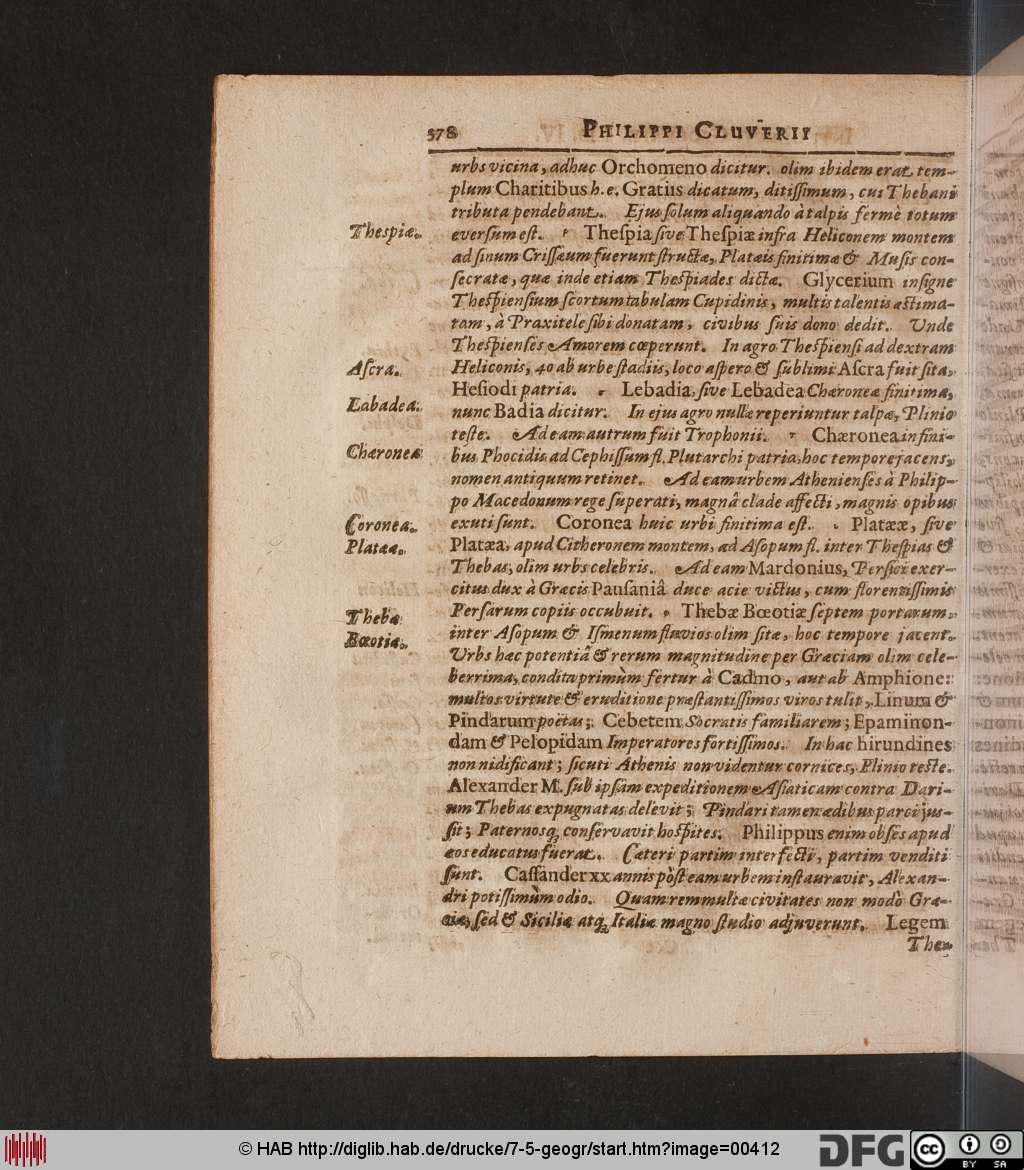 378 PHILIPPI CLUVERII
urbs vicina, adhuc Orchomeno dicitur. olim ibidem erat tem-
plum Charitibus h. e. Gratiis dicatum, ditissimum, cui Thebani
tributa pendebant. Ejus solum aliquando à talpis fermè totum
Thespiæ.
eversum est. Thespia sive Thespiæ infra Heliconem montem
ad sinum Crissæum fuerunt structæ, Platæis finitimæ & Musis con-
secratæ, quæ inde etiam Thespiades dictæ. Glycerium insigne
Thespiensium scortum tabulam Cupidinis, multis talentis æstima-
tam, à Praxitele sibi donatam, civibus suis dono dedit. Unde
Thespienses Amorem cœperunt. In agro Thespiensi ad dextram
Ascra.
Heliconis, 40 ab urbe stadiis, loco aspero & sublimi Ascra fuit sita,
Hesiodi patria. Lebadia, sive Lebadea Chæroneæ finitima,
Labadea.
nunc Badia dicitur. In ejus agro nullæ reperiuntur talpæ, Plinio
teste. Ad eam autrum fuit Trophonii. Chæronea in fini-
Chæronea
bus Phocidis ad Cephissum fl. Plutarchi patria, hoc tempore jacens,
nomen antiquum retinet. Ad eam urbem Athenienses à Philip-
po Macedonum rege superati, magnâ clade affecti, magnis opibus
Coronea.
exuti sunt. Coronea huic urbi finitima est. Platææ, sive
Platææ.
Platæa, apud Citheronem montem, ad Asopum fl. inter Thespias &
Thebas, olim urbs celebris. Ad eam Mardonius, Persici exer-
citus dux à Græcis Pausaniâ duce acie victus, cum florentissimis
Thebæ
Persarum copiis occubuit. Thebæ Bœotiæ septem portarum,
Bœotiæ.
inter Asopum & Ismenum fluvios olim sitæ, hoc tempore jacent.
Urbs hæc potentiâ & rerum magnitudine per Græciam olim cele-
berrima, condita primùm fertur à Cadmo, aut ab Amphione:
multos virtute & eruditione præstantissimos viros tulit, Linum &
Pindarum poëtas; Cebetem Socratis familiarem; Epaminon-
dam & Pelopidam Imperatores fortissimos. In hac hirundines
non nidificant; sicuti Athenis non videntur cornices, Plinio teste.
Alexander M. sub ipsam expeditionem Asiaticam contra Dari-
um Thebas expugnatas delevit; Pindari tamen ædibus parci jus-
sit; Paternosq; conservavit hospites. Philippus enim obses apud
eos educatus fuerat. Cæteri partim interfecti, partim venditi
sunt. Cassander xx annis pòst eam urbem instauravit, Alexan-
dri potissimùm odio. Quam rem multæ civitates non modò Græ-
ciæ, sed & Siciliæ atq; Italiæ magno studio adjuverunt. Legem
The-
© HAB http://diglib.hab.de/drucke/7-5-geogr/start.htm?image=00412
DFG
cc
BY SA